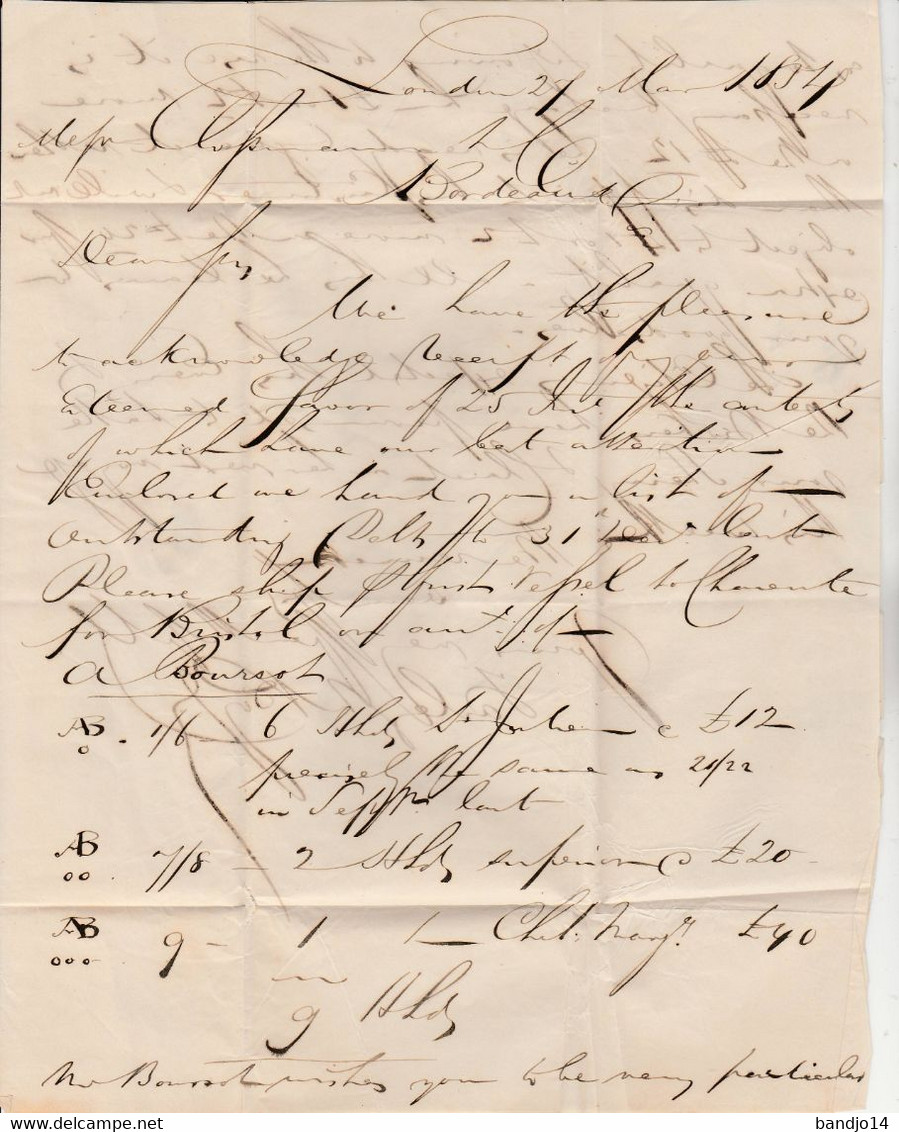 London 27 Mar 1854
Messrs Closmann et Co
Bordeaux
Dear Sirs,
We have the pleasure
to acknowledge receipt of your
Esteemed favor of 25 Inst the contents
of which have our best attention
Enclosed we hand you a list of
outstanding Debts to 31st Decr last
Please ship pr first Vessel to Charente
for Bristol on acct. of
A Boursot
AB
o . 1/6 - 6 Hhds St Julien @ £12
precisely the same as 21/22
in Septr. last
AB
oo . 7/8 - 2 Hhds superior @ £20 -
AB
ooo - 9 - 1 1 - Cht. Margx. £40
9 Hhds
Mr Boursot wishes you to be very particular
bandjo14